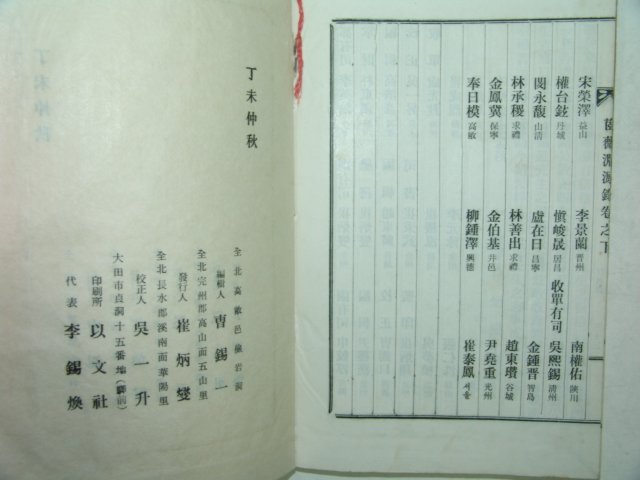 淵源錄卷之下
宋榮澤 益山 李景蘭 晋州 南權佑 陜川
權台鉉 丹城 愼峻晟 居昌 收單有司 吳熙錫 清州
閔永馥 山清 盧在日 昌寧 金鍾晋 智島
林承稷 求禮 林善出 求禮 趙東瓚 谷城
金鳳冀 保寧 金伯基 井邑 尹堯重 光州
奉日模 高敞 柳鍾澤 興德 崔泰鳳 서울
丁未仲秋
全北高敞邑 岩洞
編輯人 曺錫一
全北完州郡高山面五山里
發行人 崔炳燮
全北長水郡溪南面華陽里
校正人 吳一升
大田市貞洞十五番地(驛前)
印刷所 以文社
代表 李錫煥